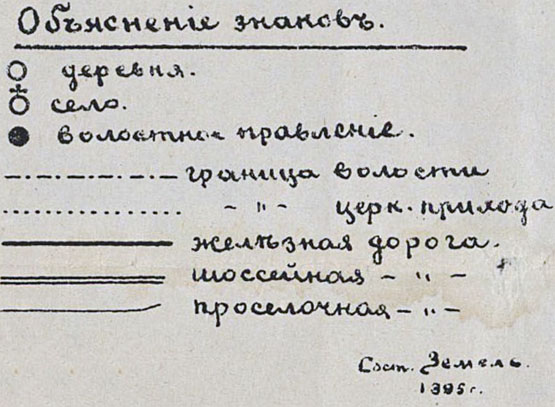 Объясненіе знаковъ.
деревня.
село.
волостное правленіе.
граница волости
– „ – церк. прихода
желѣзная дорога.
шоссейная – „ –
проселочная – „ –
Сост. Земель.
1895 г.